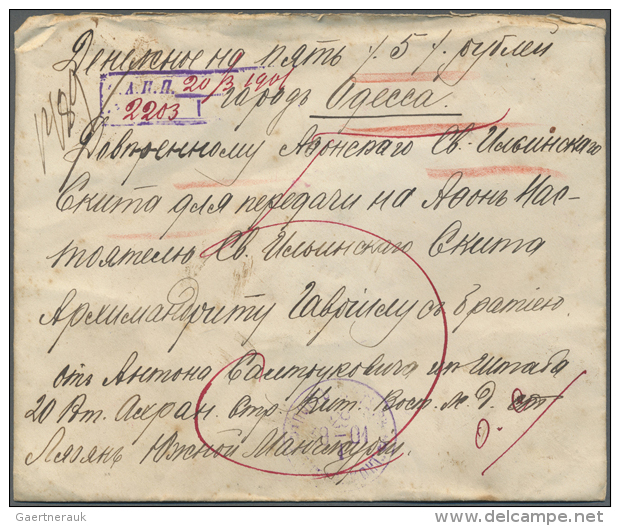 Денежное на пять /.5/. рублей
А.К.П. 20/3 1901
2203
городъ Одесса.
Довѣренному Аѳонскаго Св. Ильинскаго
Скита для передачи на Аѳонъ Нас-
тоятелю Св. Ильинскаго Скита
Архимандриту Гавріилу съ братіею.
отъ Антона изъ Штаба
20 Вт. Охран. Стр. Кит. Вост. ж. д.
Лаоянъ Южной Манчжуріи.
Gaertnerauk
www.delcampe.net